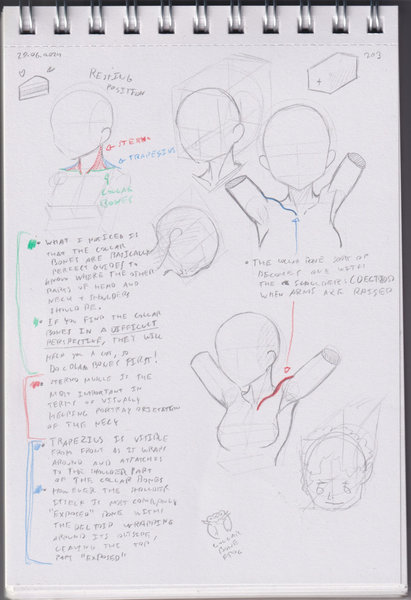 29.06.2021
203
RESTING
POSITION
STERNO
TRAPEZIUS
COLLAR
BONES
• WHAT I NOTICED IS
THAT THE COLLAR
BONES ARE BASICALLY
PERFECT GUIDES TO
KNOW WHERE THE OTHER
PARTS OF HEAD AND
NECK & SHOULDERS
SHOULD BE.
• IF YOU FIND THE COLLAR
BONES IN A DIFFICULT
PERSPECTIVE, THEY WILL
HELP YOU A LOT, SO
DO COLLAR BONES FIRST!
• STERNO MUSCLE IS THE
MOST IMPORTANT IN
TERMS OF VISUALLY
HELPING PORTRAY ORIENTATION
OF THE NECK
• TRAPEZIUS IS VISIBLE
FROM FRONT AS IT WRAPS
AROUND AND ATTACHES
TO THE SHOULDER PART
OF THE COLLAR BONES
• HOWEVER THE SHOULDER
ITSELF IS MOST COMMONLY
"EXPOSED" BONE WITH
THE DELTOID WRAPPING
AROUND ITS OUTSIDE,
LEAVING THE TOP
PART "EXPOSED"
• THE COLLAR BONE SORT OF
BECOMES ONE WITH
THE SHOULDERS (DELTOIDS)
WHEN ARMS ARE RAISED
COLLAR
BONE